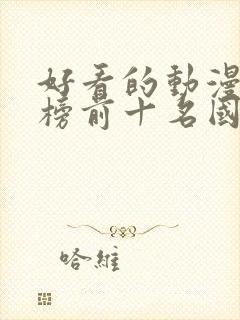 好看的動漫
榜前十名國
哈維